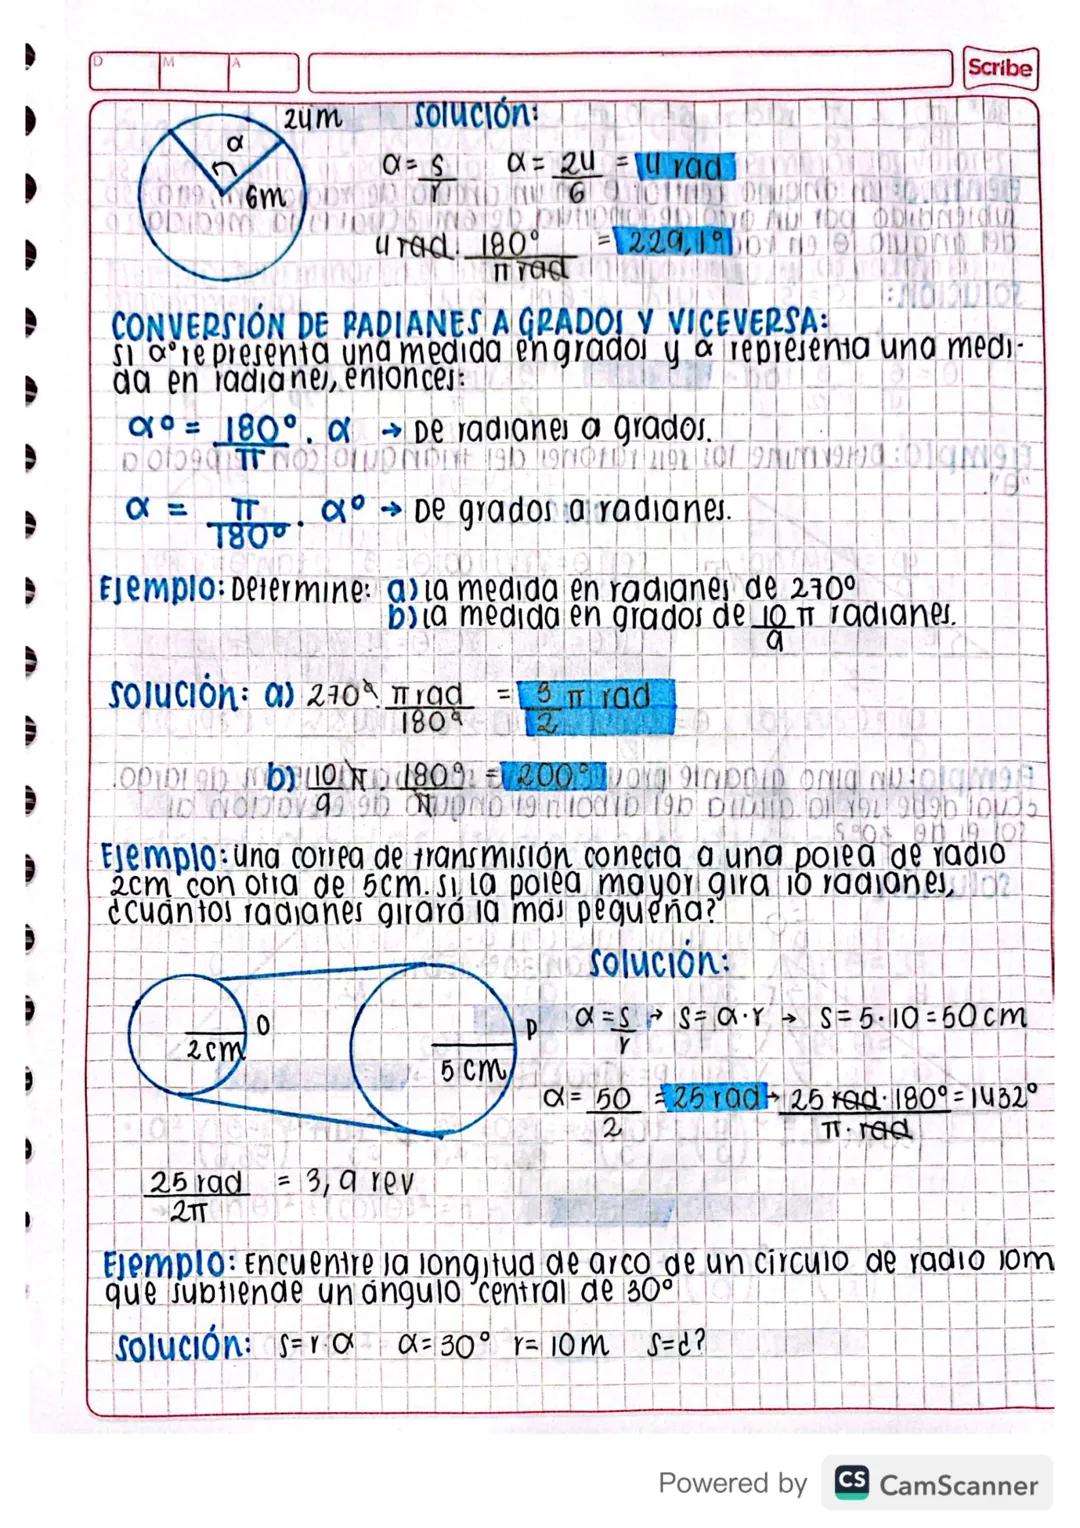 D M A
Scribe
24m
solución:
α
6m
α = s/r α = 24/6 = 4 rad
4 rad · 180°/π rad = 229,1°
CONVERSIÓN DE RADIANES A GRADOS Y VICEVERSA:
si α° representa una medida en grados y α representa una medi-
da en radianes, entonces:
α° = 180°/π · α → De radianes a grados.
α = π/180° · α° → De grados a radianes.
Ejemplo: Determine: a) la medida en radianes de 270°
b) la medida en grados de 10/9 π radianes.
solución: a) 270° · π rad/180° = 3/2 π rad
b) 10π/9 · 180°/π = 200°
Ejemplo: una correa de transmisión conecta a una polea de radio
2cm con otra de 5cm. si la polea mayor gira 10 radianes,
¿cuántos radianes girará la más pequeña?
solución:
O
2 cm
P
5 cm
α = s/r → s = α·r → s = 5·10 = 50 cm
α = 50/2 = 25 rad → 25 rad·180°/π·rad = 1432°
25 rad/2π = 3,9 rev
Ejemplo: Encuentre la longitud de arco de un círculo de radio 10m
que subtiende un ángulo central de 30°
solución: s=r·α α=30° r=10m s=¿?
Powered by CS CamScanner